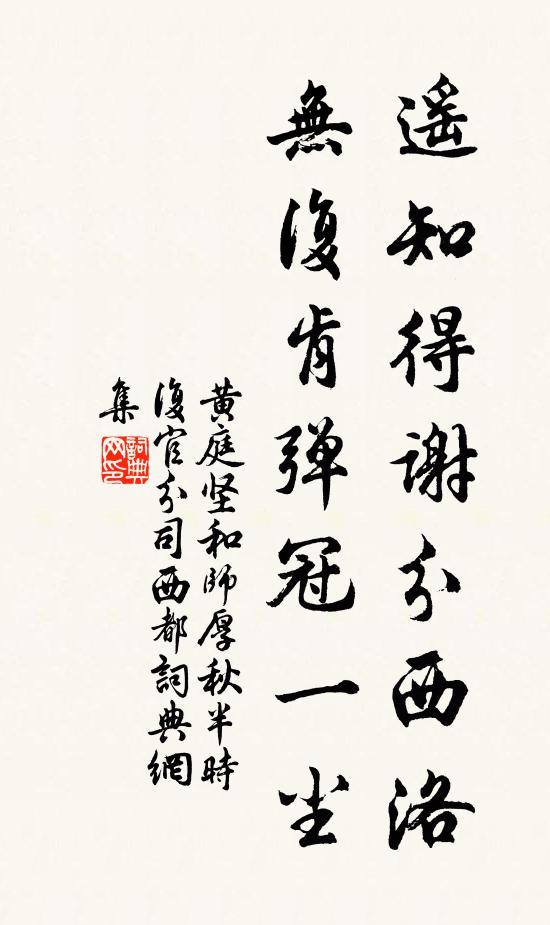 遥知得謝分西洛
無復肯弹冠一尘
黄庭坚和師厚秋半時
復官分司西都詞典網
集
詞典网印